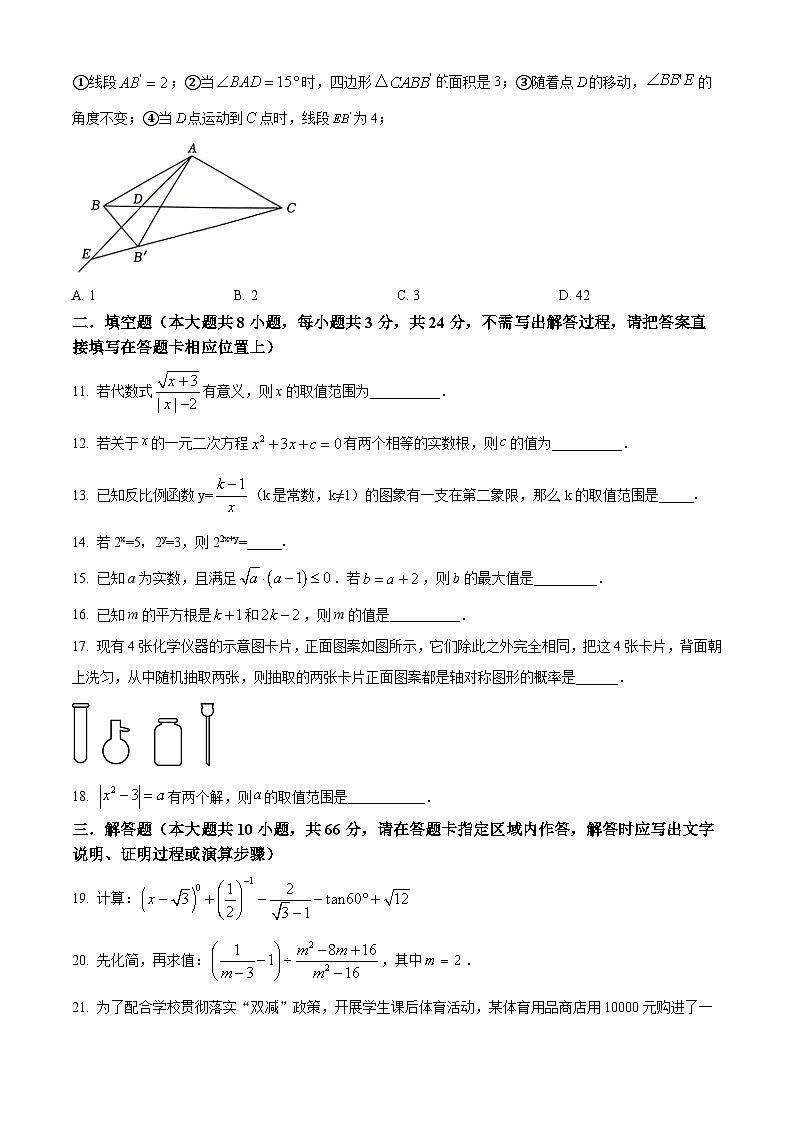 ①线段 AB' = 2；②当 ∠BAD = 15° 时，四边形 △CABB' 的面积是 3；③随着点 D 的移动，∠BB'E 的
角度不变；④当 D 点运动到 C 点时，线段 EB' 为 4；
A
B
D
C
E
B′
A. 1 B. 2 C. 3 D. 42
二．填空题（本大题共 8 小题，每小题共 3 分，共 24 分，不需写出解答过程，请把答案直
接填写在答题卡相应位置上）
11. 若代数式 \frac{\sqrt{x+3}}{|x|-2} 有意义，则 x 的取值范围为__________．
12. 若关于 x 的一元二次方程 x² + 3x + c = 0 有两个相等的实数根，则 c 的值为__________．
13. 已知反比例函数 y= \frac{k-1}{x}（k 是常数，k≠1）的图象有一支在第二象限，那么 k 的取值范围是_____．
14. 若 2ˣ=5，2ʸ=3，则 2²ˣ⁺ʸ=_____．
15. 已知 a 为实数，且满足 √a · (a−1) ≤ 0．若 b = a + 2，则 b 的最大值是_________．
16. 已知 m 的平方根是 k+1 和 2k−2，则 m 的值是__________．
17. 现有 4 张化学仪器的示意图卡片，正面图案如图所示，它们除此之外完全相同，把这 4 张卡片，背面朝
上洗匀，从中随机抽取两张，则抽取的两张卡片正面图案都是轴对称图形的概率是______．
18. |x² − 3| = a 有两个解，则 a 的取值范围是___________．
三．解答题（本大题共 10 小题，共 66 分，请在答题卡指定区域内作答，解答时应写出文字
说明、证明过程或演算步骤）
19. 计算：(x − √3)⁰ + (\frac{1}{2})⁻¹ − \frac{2}{\sqrt{3}-1} − tan60° + √12
20. 先化简，再求值：(\frac{1}{m-3} − 1) ÷ \frac{m²−8m+16}{m²−16}，其中 m = 2．
21. 为了配合学校贯彻落实“双减”政策，开展学生课后体育活动，某体育用品商店用 10000 元购进了一